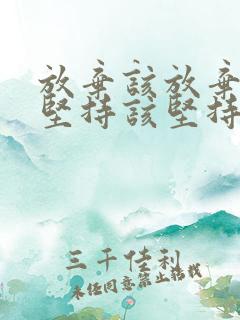 放棄該放棄
堅持該堅持
三千佳利
未经同意禁止搭载